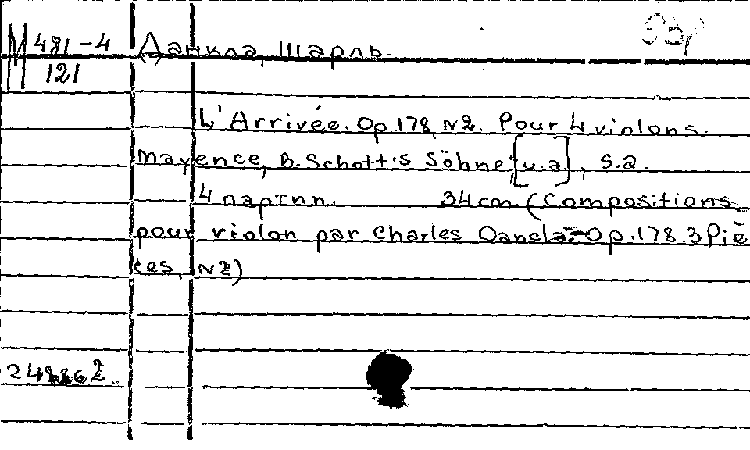 М 481-4 Данкла, Шарль.
121
L'Arrivée. Op.178 N2. Pour 4 violons.
Mayence, B. Schott's Söhne [u.a], s.a.
4 партии. 34 cm (Compositions
pour violon par Charles Dancla-Op.178 3 Piè
ces, N2)